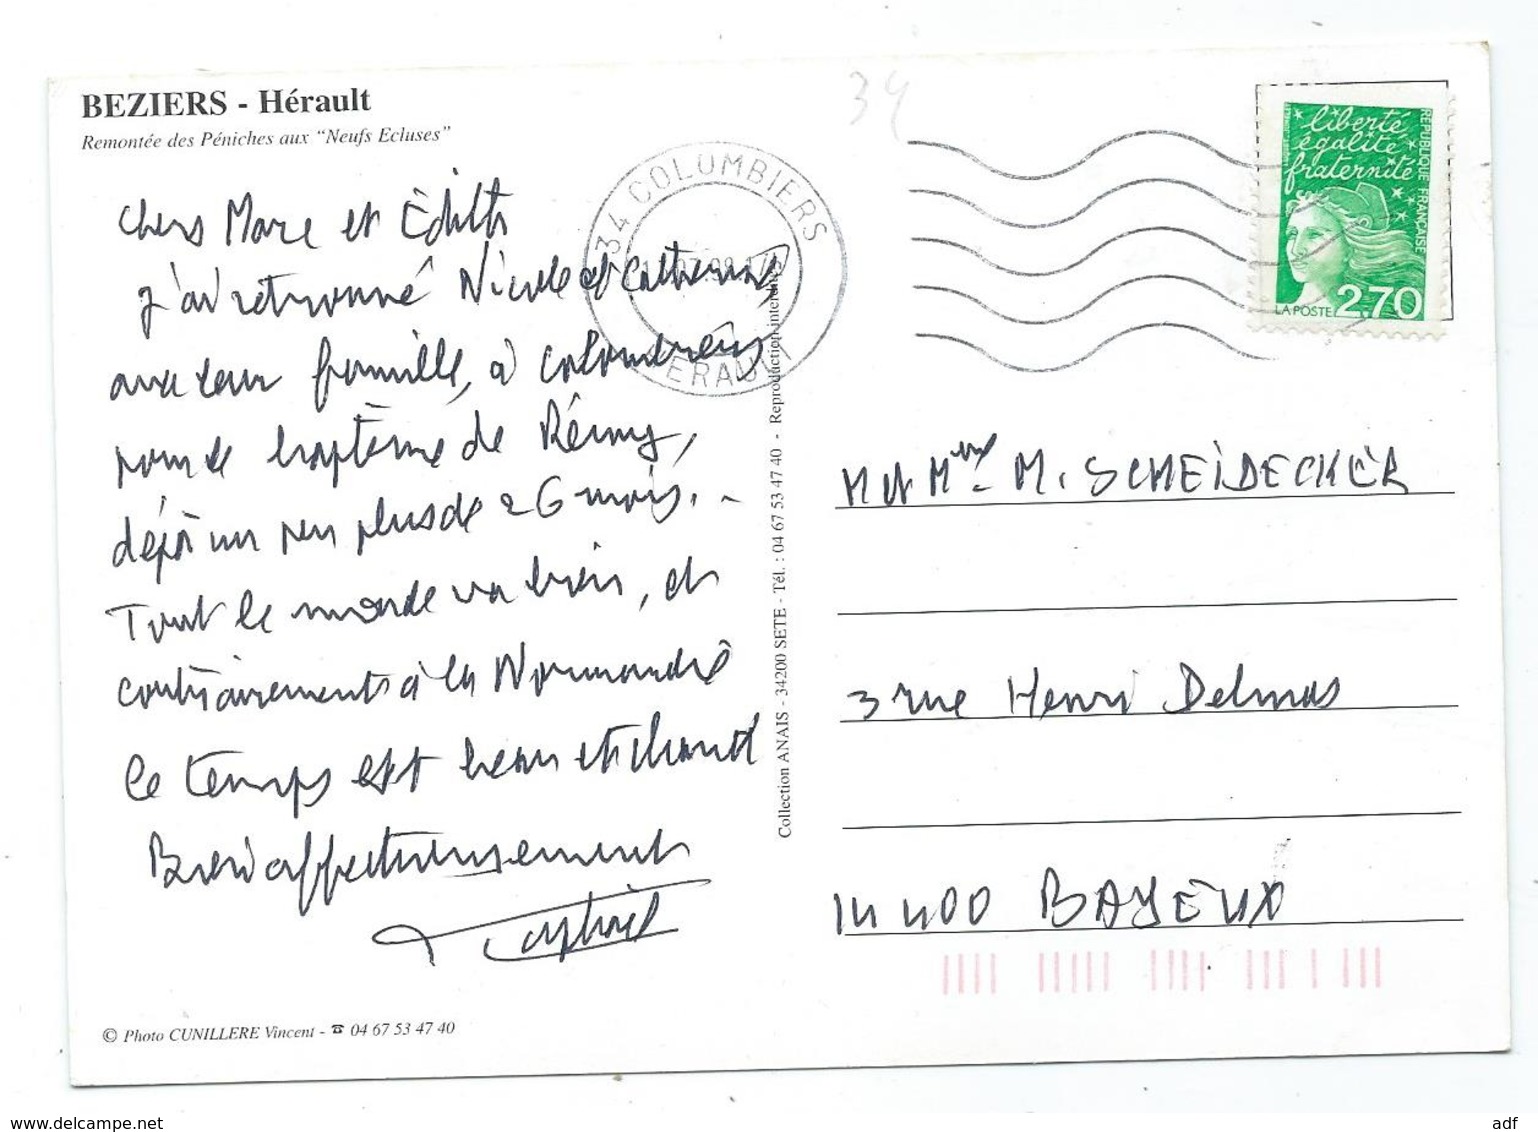 BEZIERS - Hérault
Remontée des Péniches aux "Neufs Ecluses"
34
34 COLOMBIERS
HERAULT
liberté
égalité
fraternité
REPUBLIQUE FRANÇAISE
LA POSTE 2,70
Chers Marc et Edith
J'ai retrouvé Nicole et Catherine
avec leur famille, à Colombiers
pour le baptême de Rémy,
déjà un peu plus de 26 mois. -
Tout le monde va bien, et
contrairement à la Normandie
le temps est beau et chaud
Bien affectueusement
Collection ANAIS - 34200 SETE - Tél. : 04 67 53 47 40 - Reproduction interdite
M et Mme M. SCHEIDECKER
3 rue Henri Delmas
14 400 BAYEUX
© Photo CUNILLERE Vincent - ☎ 04 67 53 47 40
www.delcampe.net
adf